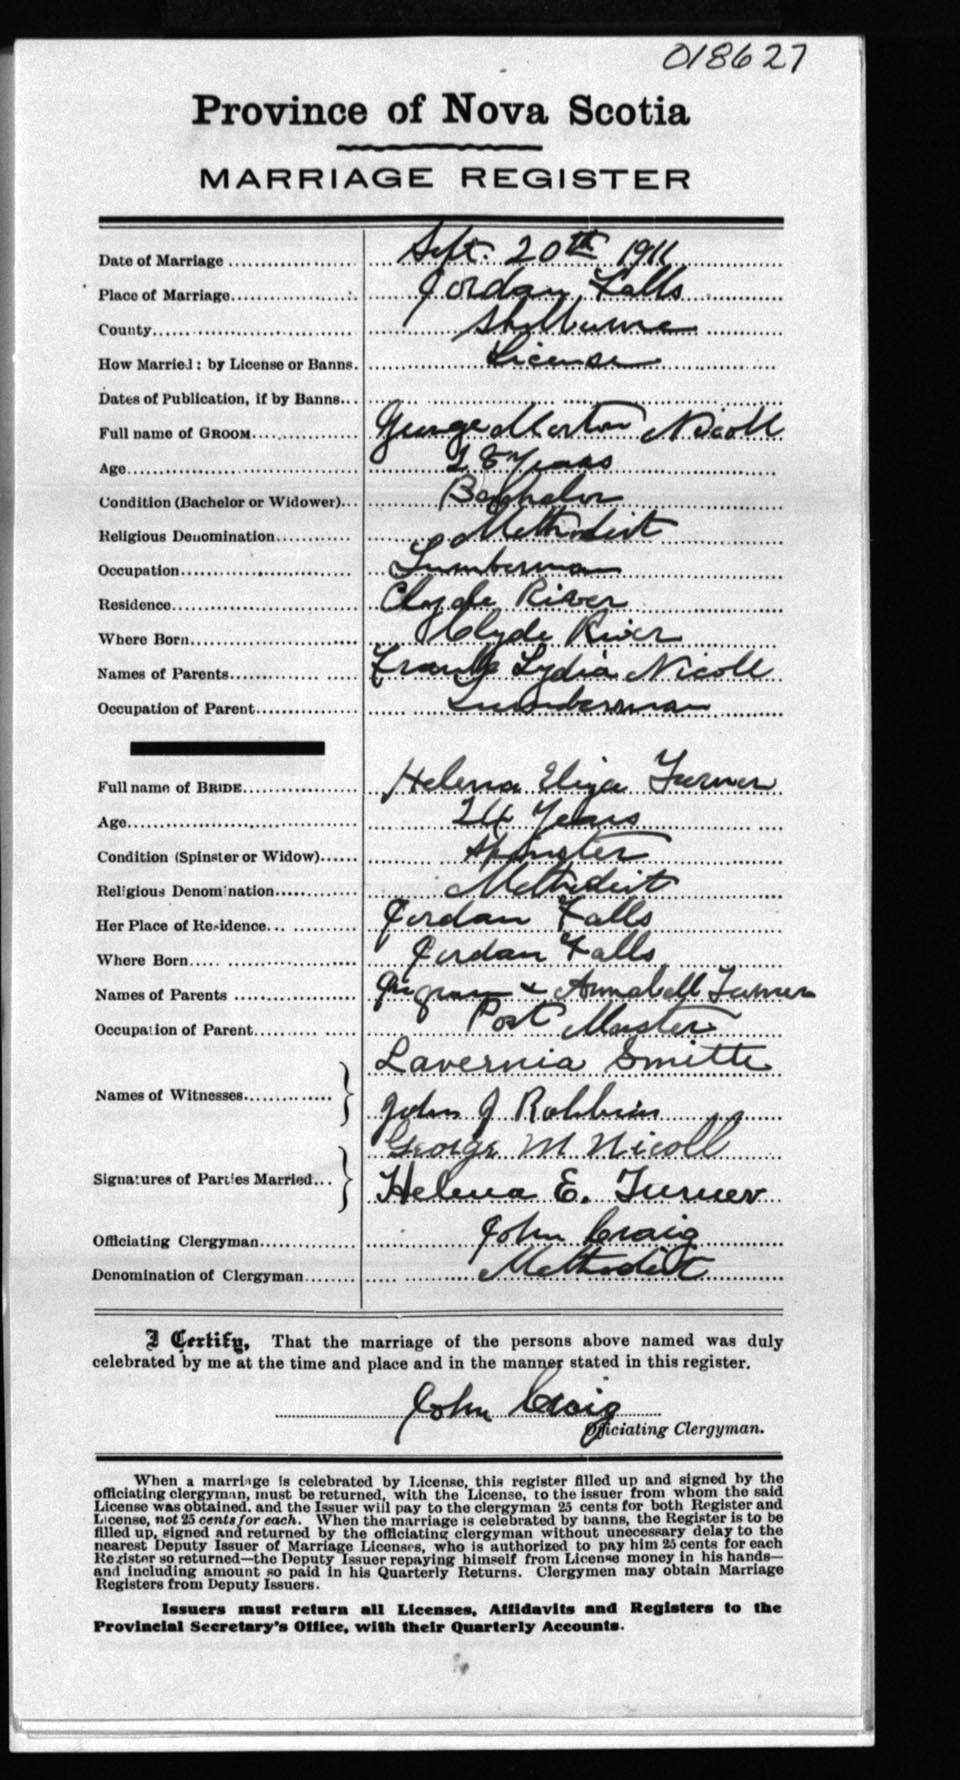 018627
Province of Nova Scotia
MARRIAGE REGISTER
Date of Marriage Sept. 20th 1911
Place of Marriage Jordan Falls
County Shelburne
How Married: by License or Banns. License
Dates of Publication, if by Banns
Full name of GROOM George Morton Nicoll
Age 28 Years
Condition (Bachelor or Widower) Bachelor
Religious Denomination Methodist
Occupation Lumberman
Residence Clyde River
Where Born Clyde River
Names of Parents Frank Lydia Nicoll
Occupation of Parent Lumberman
Full name of BRIDE Helena Eliza Turner
Age 24 Years
Condition (Spinster or Widow) Spinster
Religious Denomination Methodist
Her Place of Residence Jordan Falls
Where Born Jordan Falls
Names of Parents + Annabell Turner
Occupation of Parent Post Master
Names of Witnesses Lavernia Smith
John J Robbins
Signatures of Parties Married George M Nicoll
Helena E. Turner
Officiating Clergyman John Craig
Denomination of Clergyman Methodist
I Certify, That the marriage of the persons above named was duly
celebrated by me at the time and place and in the manner stated in this register.
John Craig
Officiating Clergyman.
When a marriage is celebrated by License, this register filled up and signed by the
officiating clergyman, must be returned, with the License, to the issuer from whom the said
License was obtained, and the Issuer will pay to the clergyman 25 cents for both Register and
License, not 25 cents for each. When the marriage is celebrated by banns, the Register is to be
filled up, signed and returned by the officiating clergyman without unnecessary delay to the
nearest Deputy Issuer of Marriage Licenses, who is authorized to pay him 25 cents for each
Register so returned—the Deputy Issuer repaying himself from License money in his hands—
and including amount so paid in his Quarterly Returns. Clergymen may obtain Marriage
Registers from Deputy Issuers.
Issuers must return all Licenses, Affidavits and Registers to the
Provincial Secretary's Office, with their Quarterly Accounts.